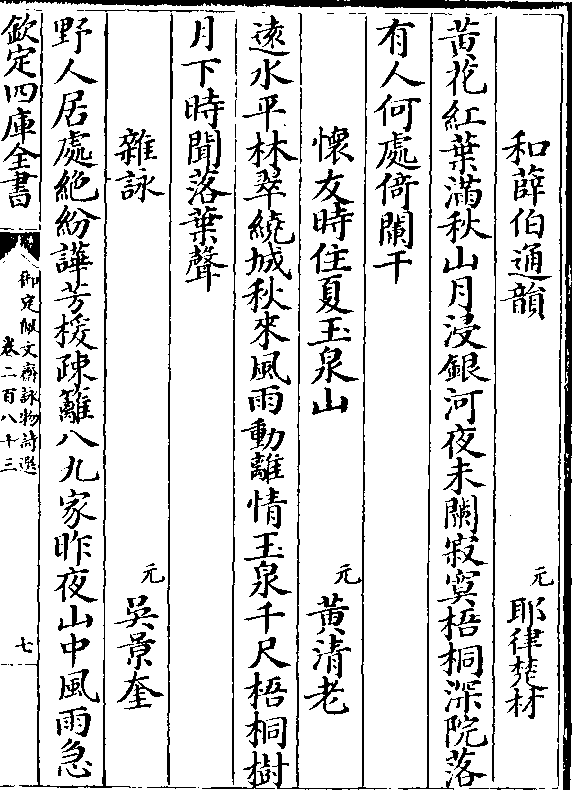 和薛伯通韻 元 耶律楚材
黃花紅葉滿秋山月浸銀河夜未闌寂寞梧桐深院落
有人何處倚闌干
懷友時住夏玉泉山 元 黃清老
遠水平林翠繞城秋來風雨動離情玉泉千尺梧桐樹
月下時聞落葉聲
雜詠 元 吳景奎
野人居處絶紛譁芳援疎籬八九家昨夜山中風雨急
欽定四庫全書 御定佩文齋詠物詩選 卷二百八十三 七